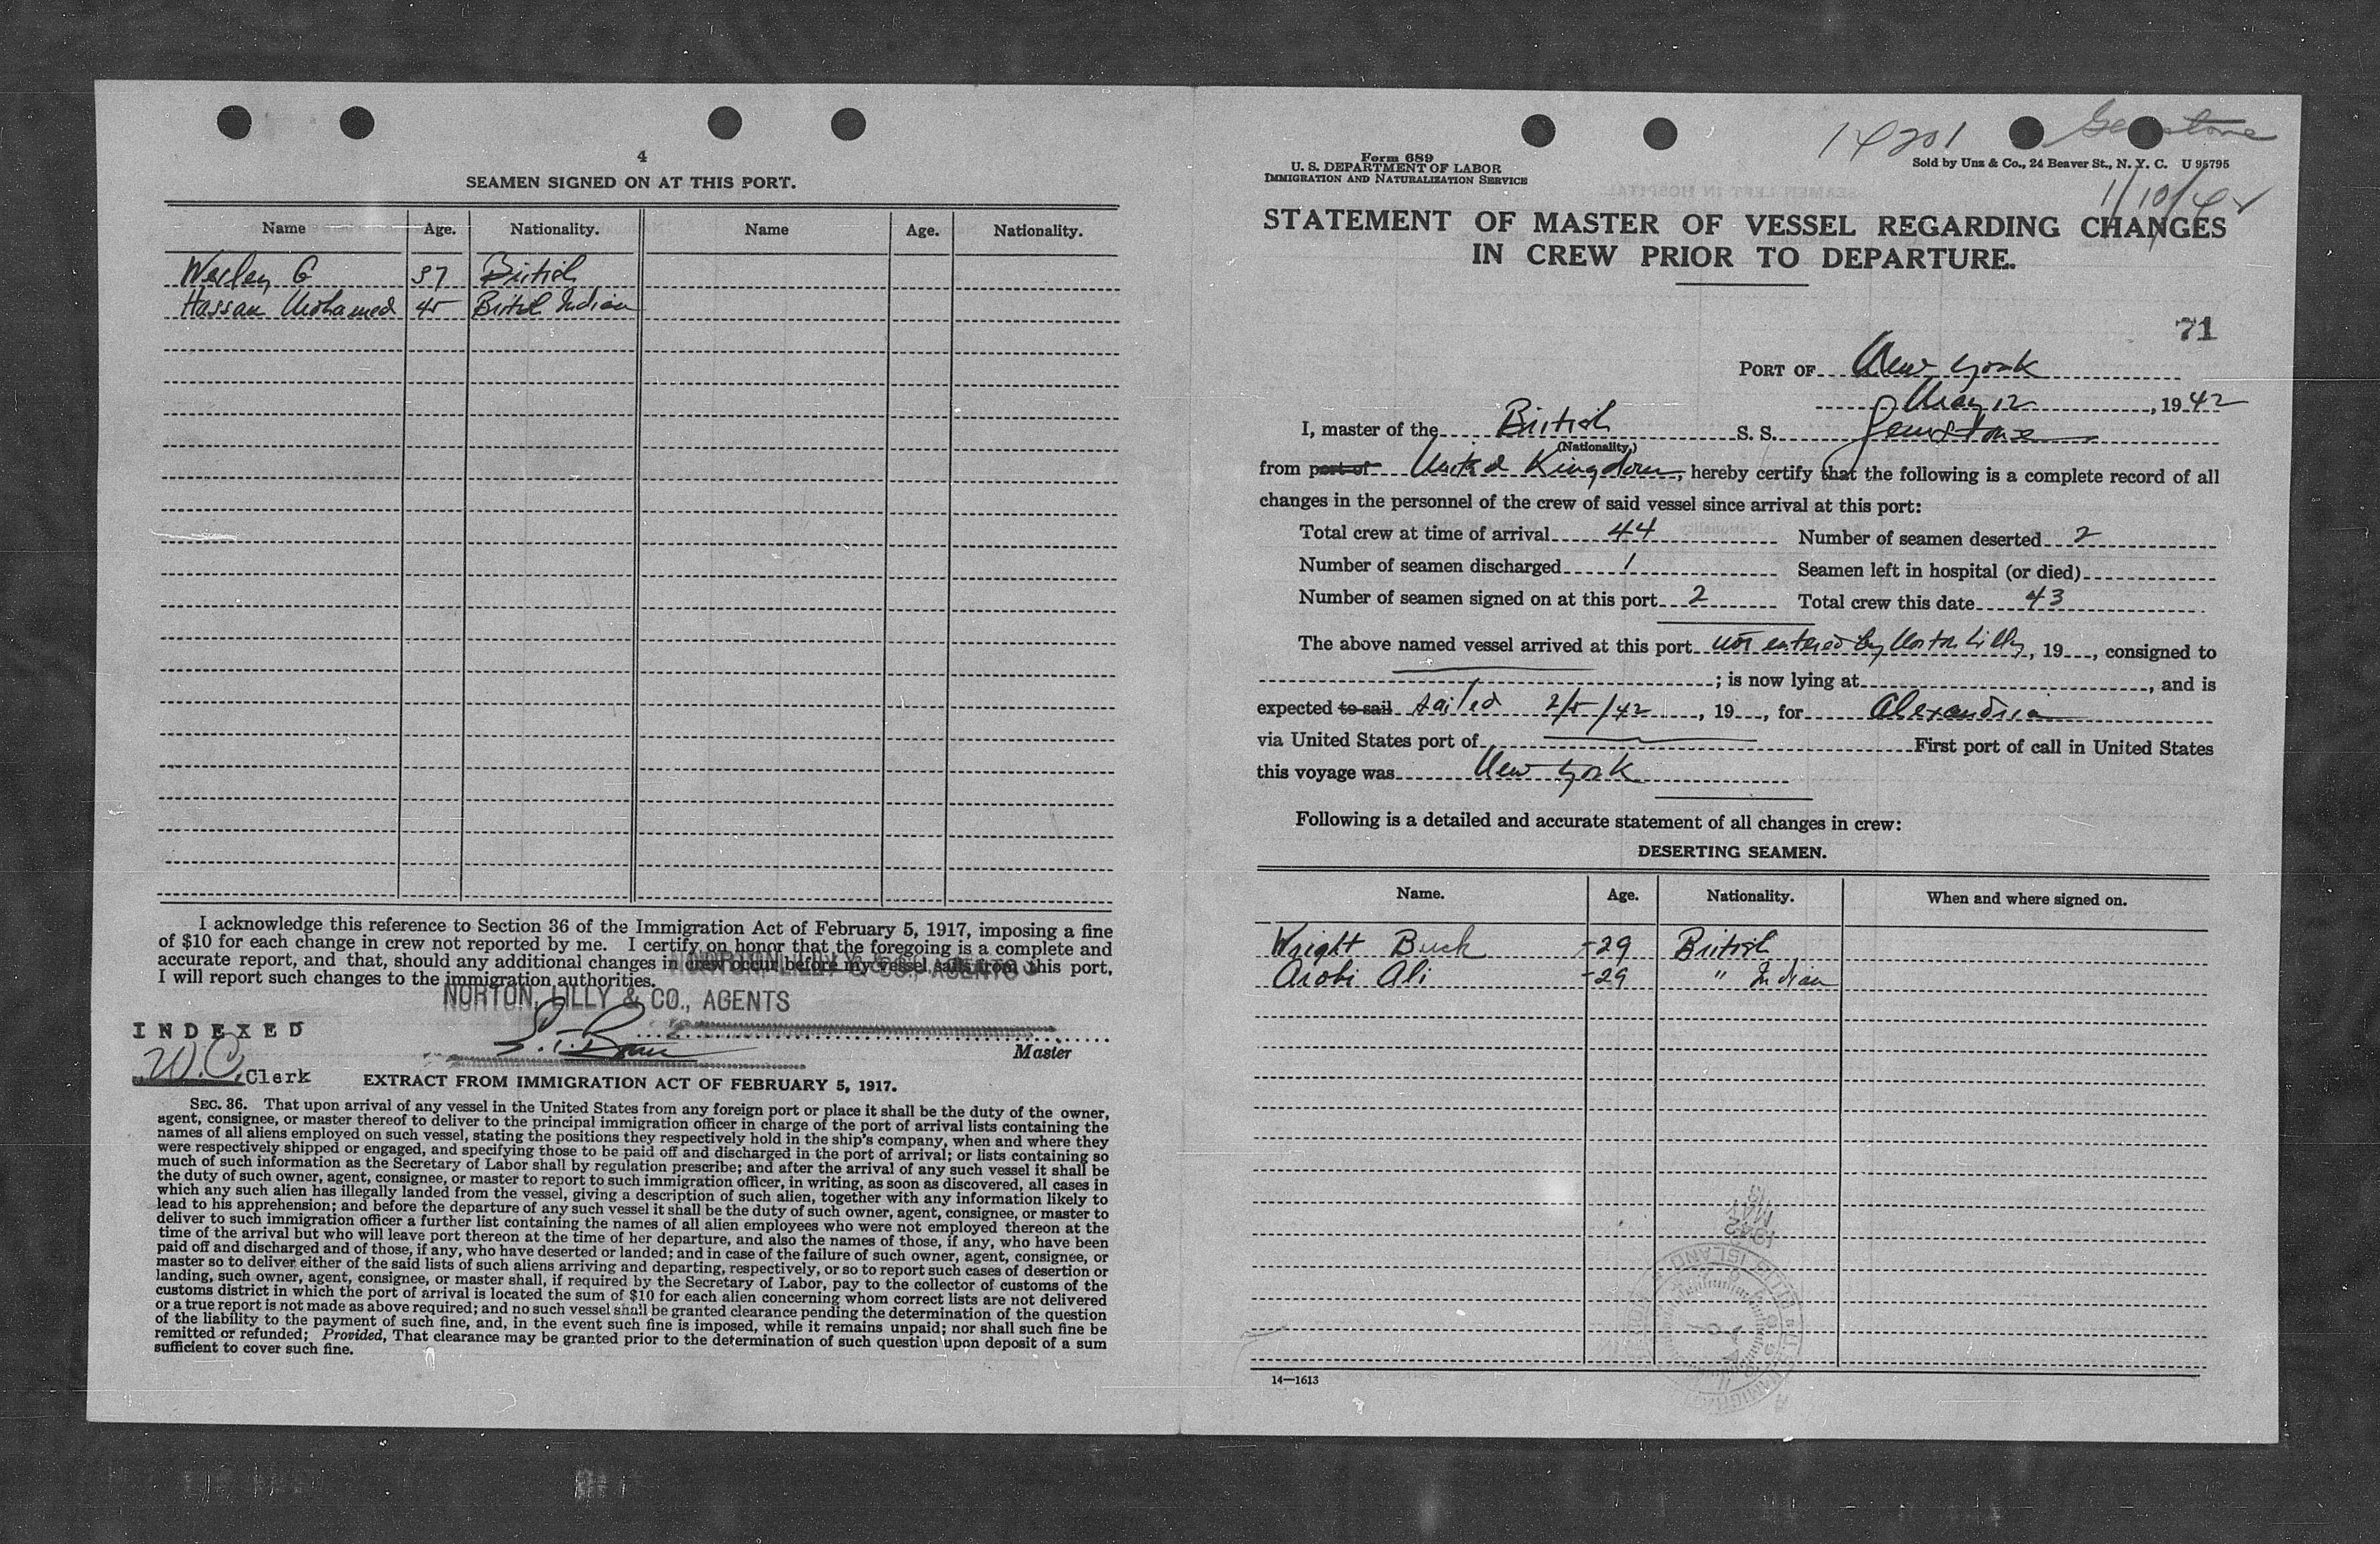 4
SEAMEN SIGNED ON AT THIS PORT.
Name Age. Nationality. Name Age. Nationality.
Wesley G 37 British
Hassan Mohamed 45 British Indian
I acknowledge this reference to Section 36 of the Immigration Act of February 5, 1917, imposing a fine
of $10 for each change in crew not reported by me. I certify on honor that the foregoing is a complete and
accurate report, and that, should any additional changes in crew occur before my vessel sails from this port,
I will report such changes to the immigration authorities.
NORTON, LILLY & CO., AGENTS
INDEXED
Master
W.C. Clerk
EXTRACT FROM IMMIGRATION ACT OF FEBRUARY 5, 1917.
SEC. 36. That upon arrival of any vessel in the United States from any foreign port or place it shall be the duty of the owner,
agent, consignee, or master thereof to deliver to the principal immigration officer in charge of the port of arrival lists containing the
names of all aliens employed on such vessel, stating the positions they respectively hold in the ship's company, when and where they
were respectively shipped or engaged, and specifying those to be paid off and discharged in the port of arrival; or lists containing so
much of such information as the Secretary of Labor shall by regulation prescribe; and after the arrival of any such vessel it shall be
the duty of such owner, agent, consignee, or master to report to such immigration officer, in writing, as soon as discovered, all cases in
which any such alien has illegally landed from the vessel, giving a description of such alien, together with any information likely to
lead to his apprehension; and before the departure of any such vessel it shall be the duty of such owner, agent, consignee, or master to
deliver to such immigration officer a further list containing the names of all alien employees who were not employed thereon at the
time of the arrival but who will leave port thereon at the time of her departure, and also the names of those, if any, who have been
paid off and discharged and of those, if any, who have deserted or landed; and in case of the failure of such owner, agent, consignee, or
master so to deliver either of the said lists of such aliens arriving and departing, respectively, or so to report such cases of desertion or
landing, such owner, agent, consignee, or master shall, if required by the Secretary of Labor, pay to the collector of customs of the
customs district in which the port of arrival is located the sum of $10 for each alien concerning whom correct lists are not delivered
or a true report is not made as above required; and no such vessel shall be granted clearance pending the determination of the question
of the liability to the payment of such fine, and, in the event such fine is imposed, while it remains unpaid; nor shall such fine be
remitted or refunded; Provided, That clearance may be granted prior to the determination of such question upon deposit of a sum
sufficient to cover such fine.
14201 Gemstone
Form 689
U. S. DEPARTMENT OF LABOR
IMMIGRATION AND NATURALIZATION SERVICE
Sold by Unz & Co., 24 Beaver St., N. Y. C. U 95795
1/10/42
STATEMENT OF MASTER OF VESSEL REGARDING CHANGES
IN CREW PRIOR TO DEPARTURE.
71
PORT OF New York
May 12, 1942
I, master of the British S. S. Gemstone
(Nationality)
from port of United Kingdom, hereby certify that the following is a complete record of all
changes in the personnel of the crew of said vessel since arrival at this port:
Total crew at time of arrival 44 Number of seamen deserted 2
Number of seamen discharged 1 Seamen left in hospital (or died)
Number of seamen signed on at this port 2 Total crew this date 43
The above named vessel arrived at this port not entered by Norton Lilly, 19, consigned to
; is now lying at, and is
expected to sail sailed 2/5/42, 19, for Alexandria
via United States port of First port of call in United States
this voyage was New York
Following is a detailed and accurate statement of all changes in crew:
DESERTING SEAMEN.
Name. Age. Nationality. When and where signed on.
Wright Buck -29 British
Arobi Ali -29 " Indian
1942
MAY
13
14—1613